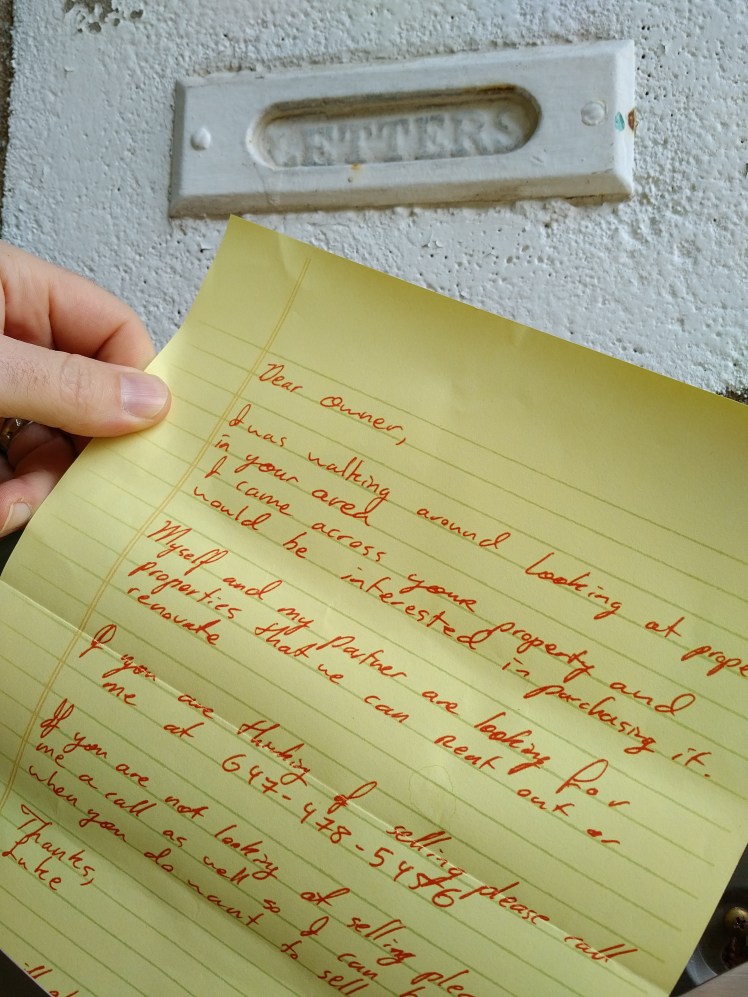 LETTERS
Dear owner,
I was walking around looking at prope
in your area
I came across your property and
would be interested in purchasing it.
Myself and my partner are looking for
properties that we can rent out or
renovate
If you are thinking of selling please call
me at 647-478-5456
If you are not looking at selling plea
me a call as well so I can b
when you do want to sell
Thanks,
Luke